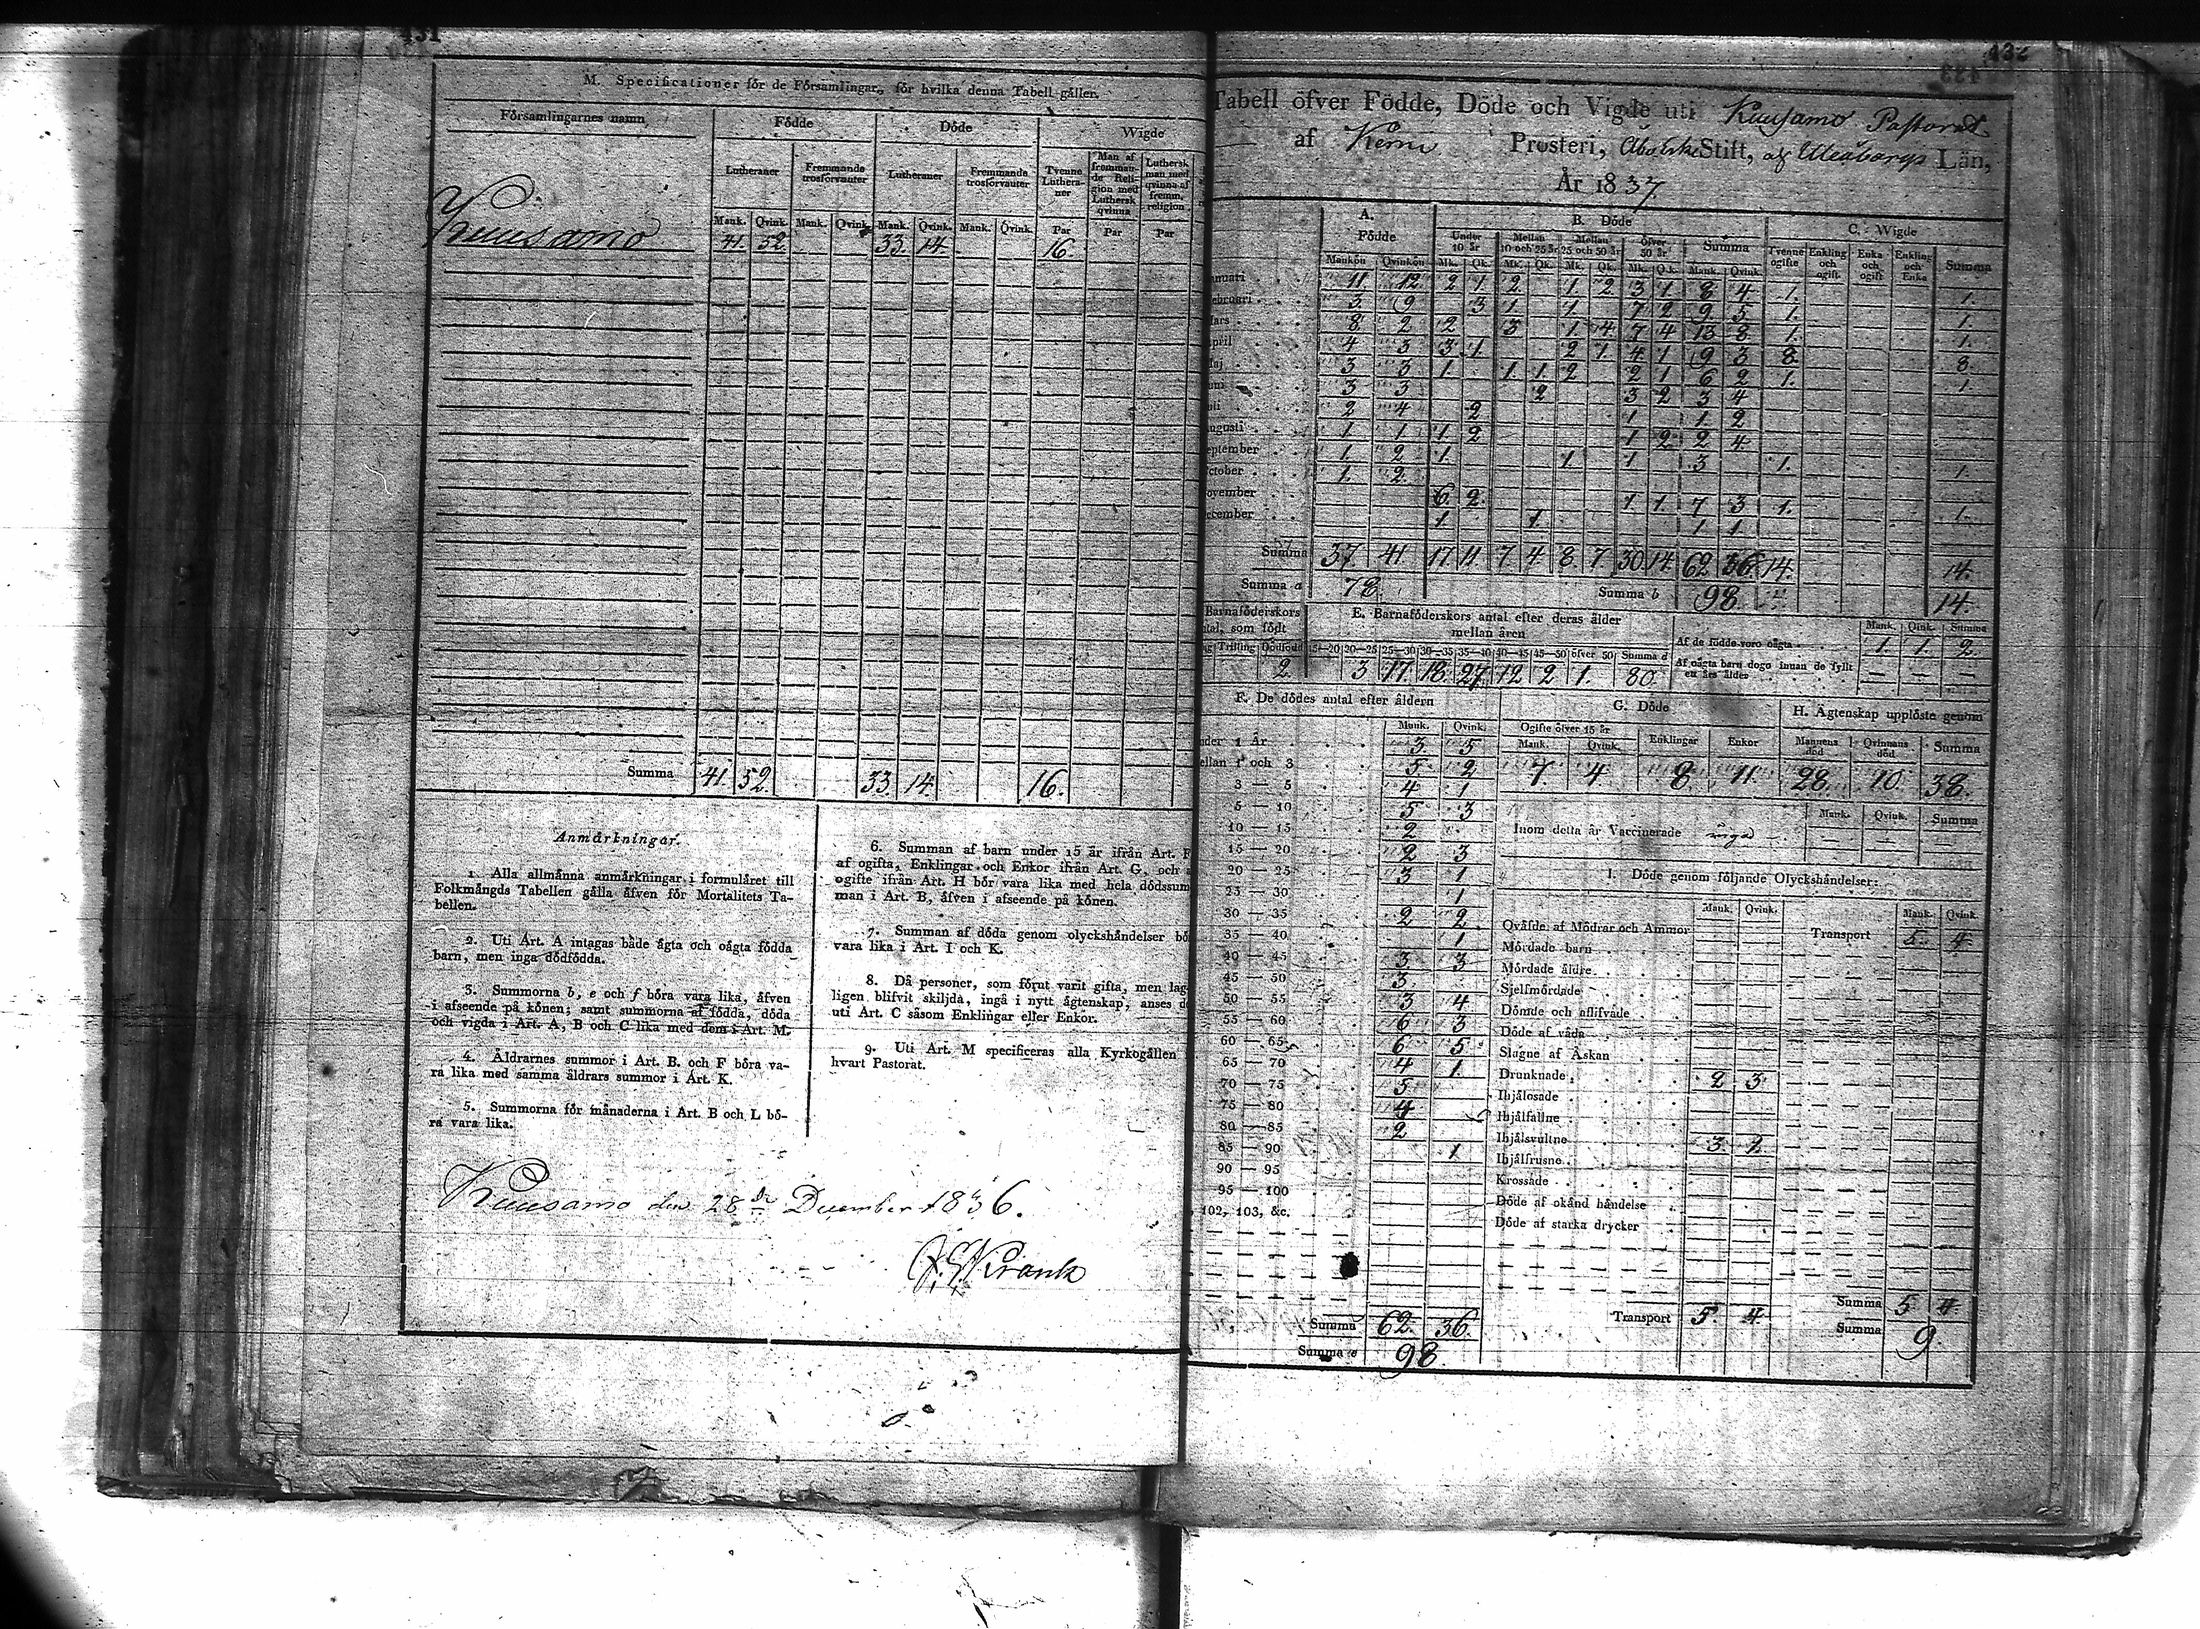 431
M. Specificationer för de Församlingar, för hvilka denna Tabell gäller.
Församlingarnes namn Födde Döde Wigde
Lutheraner Fremmande trosförvanter Lutheraner Fremmande trosförvanter Tvenne Lutheraner Man af fremmande Religion med Luthersk qvinna Luthersk man med qvinna af fremm. religion
Mank. Qvink. Mank. Qvink. Mank. Qvink. Mank. Qvink. Par Par Par
Kuusamo 41. 52. 33. 14. 16.
Summa 41. 52. 33. 14. 16.
Anmärkningar.
1. Alla allmänna anmärkningar i formuläret till
Folkmängds Tabellen gälla äfven för Mortalitets Ta-
bellen.
2. Uti Art. A intagas både ägta och oägta födda
barn, men inga dödfödda.
3. Summorna b, e och f böra vara lika, äfven
i afseende på könen; samt summorna af födda, döda
och vigda i Art. A, B och C lika med dem i Art. M.
4. Äldrarnes summor i Art. B. och F böra va-
ra lika med samma äldrars summor i Art. K.
5. Summorna för månaderna i Art. B och L bö-
ra vara lika.
6. Summan af barn under 15 år ifrån Art. F
af ogifta, Enklingar och Enkor ifrån Art. G, och
ogifte ifrån Art. H bör vara lika med hela dödssum
man i Art. B, äfven i afseende på könen.
7. Summan af döda genom olyckshändelser bö
vara lika i Art. I och K.
8. Då personer, som förut varit gifta, men lag
ligen blifvit skiljda, ingå i nytt ägtenskap, anses d
uti Art. C såsom Enklingar eller Enkor.
9. Uti Art. M specificeras alla Kyrkogällen
hvart Pastorat.
Kuusamo den 28de December 1836.
432
Tabell öfver Födde, Döde och Vigde uti Kuusamo Pastorat
af Kemi Prosteri, Åbo Erke Stift, af Uleåborgs Län,
År 1837.
A. Födde B. Döde C. Wigde
Under 10 år Mellan 10 och 25 år Mellan 25 och 50 år Öfver 50 år Summa Tvenne ogifte Enkling och ogift Enka och ogift Enkling och Enka Summa
Mankön Qvinkön Mk. Qk. Mk. Qk. Mk. Qk. Mk. Qk. Mank. Qvink.
anuari 11 12 2 1 2 1 2 3 1 8 4 1. 1.
ebruari 3 9 3 1 1 7 2 9 5 1. 1.
ars 8 2 2 3 1 4 7 4 13 8 1. 1.
pril 4 3 3 1 2 1 4 1 9 3 8. 8.
aj 3 3 1 1 1 2 2 1 6 2 1. 1
uni 3 3 2 3 2 3 4
uli 2 4 2 1 1 2
ugusti 1 1 1 2 1 2 2 4
eptember 1. 2 1. 1. 1 3 1. 1.
ctober 1. 2.
ovember 6 2. 1 1. 7 3 1. 1.
ecember 1. 1. 1 1.
Summa 37. 41. 17. 11. 7 4. 8. 7. 30. 14. 62 36. 14. 14.
Summa a 78. Summa b 98. 14.
Barnaföderskors
tal, som födt
Trilling Dödfödd
2.
E. Barnaföderskors antal efter deras ålder
mellan åren
15—20 20—25 25—30 30—35 35—40 40—45 45—50 öfver 50 Summa d
3 17. 18. 27. 12 2 1. 80.
Mank. Qink. Summa
Af de födde voro oägta 1. 1. 2.
Af oägta barn dogo innan de fyllt
ett års ålder — — —
F. De dödes antal efter åldern
Mank. Qvink.
nder 1 År 3 5
ellan 1 och 3 5 2
3 — 5 4 1
5 — 10 5 3
10 — 15 2
15 — 20 2 3
20 — 25 3 1
25 — 30 1
30 — 35 2 2
35 — 40 1
40 — 45 3 3
45 — 50 3
50 — 55 3 4
55 — 60 6 3
60 — 65 6 5
65 — 70 4 1.
70 — 75 5
75 — 80 4
80 — 85 2
85 — 90 1
90 — 95
95 — 100
102, 103, &c.
Summa 62. 36.
Summa e 98.
G. Döde
Ogifte öfver 15 år Enklingar Enkor
Mank. Qvink.
7. 4 8. 11.
H. Ägtenskap upplöste genom
Mannens död Qvinnans död Summa
28. 10. 38.
Mank. Qvink. Summa
Inom detta år Vaccinerade inga — — —
I. Döde genom följande Olyckshändelser:
Mank. Qvink. Mank. Qvink.
Qväfde af Mödrar och Ammor
Transport 5. 4
Mördade barn
Mördade äldre
Sjelfmördade
Dömde och aflifvade
Döde af våda
Slagne af Åskan
Drunknade 2 3
Ihjälosade
Ihjälfallne
Ihjälsvultne
Ihjälfrusne 3. 1.
Krossade
Döde af okänd händelse
Döde af starka drycker
Transport 5. 4.
Summa 5 4.
Summa 9.